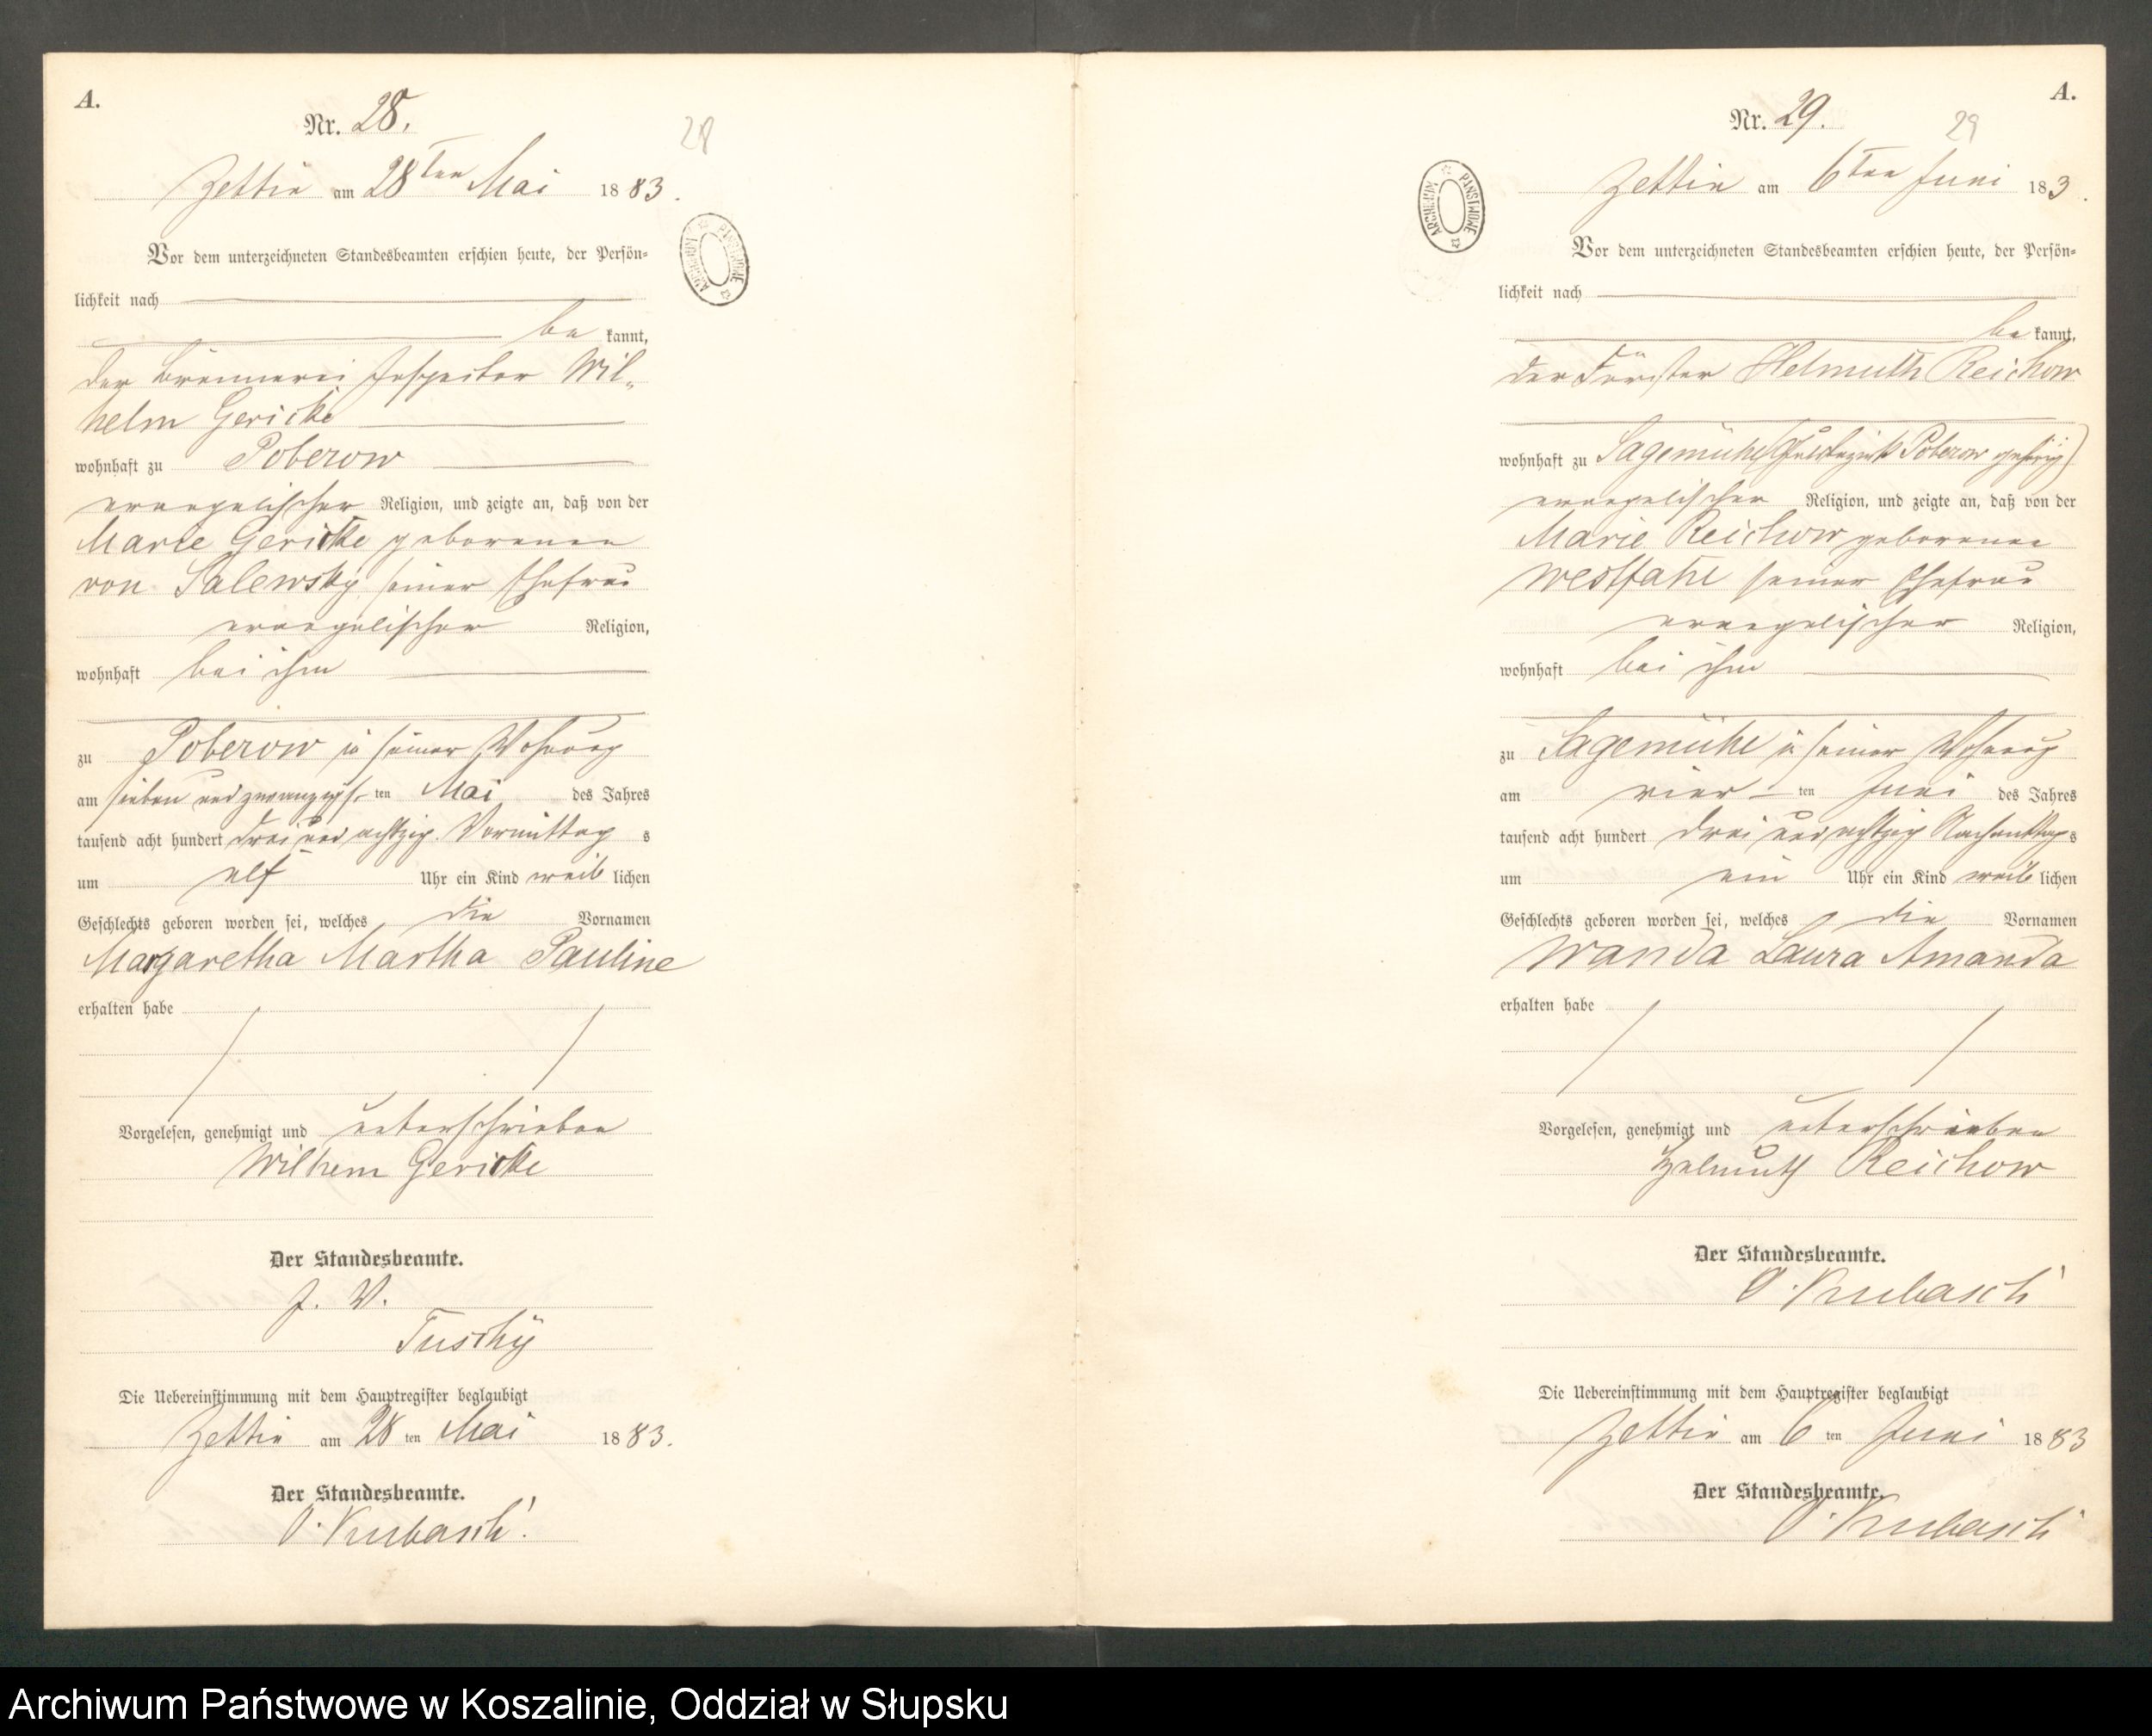 A.
Nr. 28.
28
Zettin am 28ten Mai 1883.
ARCHIWUM PAŃSTWOWE
Vor dem unterzeichneten Standesbeamten erschien heute, der Persön-
lichkeit nach
be kannt,
der Brennerei Inspector Wil-
helm Gericke
wohnhaft zu Poberow
evangelischer Religion, und zeigte an, daß von der
Marie Gericke geborenen
von Salewsky seiner Ehefrau
evangelischer Religion,
wohnhaft bei ihm
zu Poberow in seiner Wohnung
am sieben und zwanzigs-ten Mai des Jahres
tausend acht hundert drei und achtzig Vormittag s
um elf Uhr ein Kind weib lichen
Geschlechts geboren worden sei, welches die Vornamen
Margaretha Martha Pauline
erhalten habe
Vorgelesen, genehmigt und unterschrieben
Wilhem Gericke
Der Standesbeamte.
J. V.
Tuschy
Die Uebereinstimmung mit dem Hauptregister beglaubigt
Zettin am 28 ten Mai 1883.
Der Standesbeamte.
O. Kubasch.
A.
Nr. 29.
29
Zettin am 6ten Juni 183.
ARCHIWUM PAŃSTWOWE
Vor dem unterzeichneten Standesbeamten erschien heute, der Persön-
lichkeit nach
be kannt,
der Förster Helmuth Reichow
wohnhaft zu Sagemühl (Gutsbezirk Poberow gehörig)
evangelischer Religion, und zeigte an, daß von der
Marie Reichow geborenen
Westfahl seiner Ehefrau
evangelischer Religion,
wohnhaft bei ihm
zu Sagemühl in seiner Wohnung
am vier-ten Juni des Jahres
tausend acht hundert drei und achtzig Nachmittag s
um ein Uhr ein Kind weib lichen
Geschlechts geboren worden sei, welches die Vornamen
Wanda Laura Amanda
erhalten habe
Vorgelesen, genehmigt und unterschrieben
Helmuth Reichow
Der Standesbeamte.
O. Kubasch
Die Uebereinstimmung mit dem Hauptregister beglaubigt
Zettin am 6 ten Juni 1883
Der Standesbeamte.
O. Kubasch
Archiwum Państwowe w Koszalinie, Oddział w Słupsku